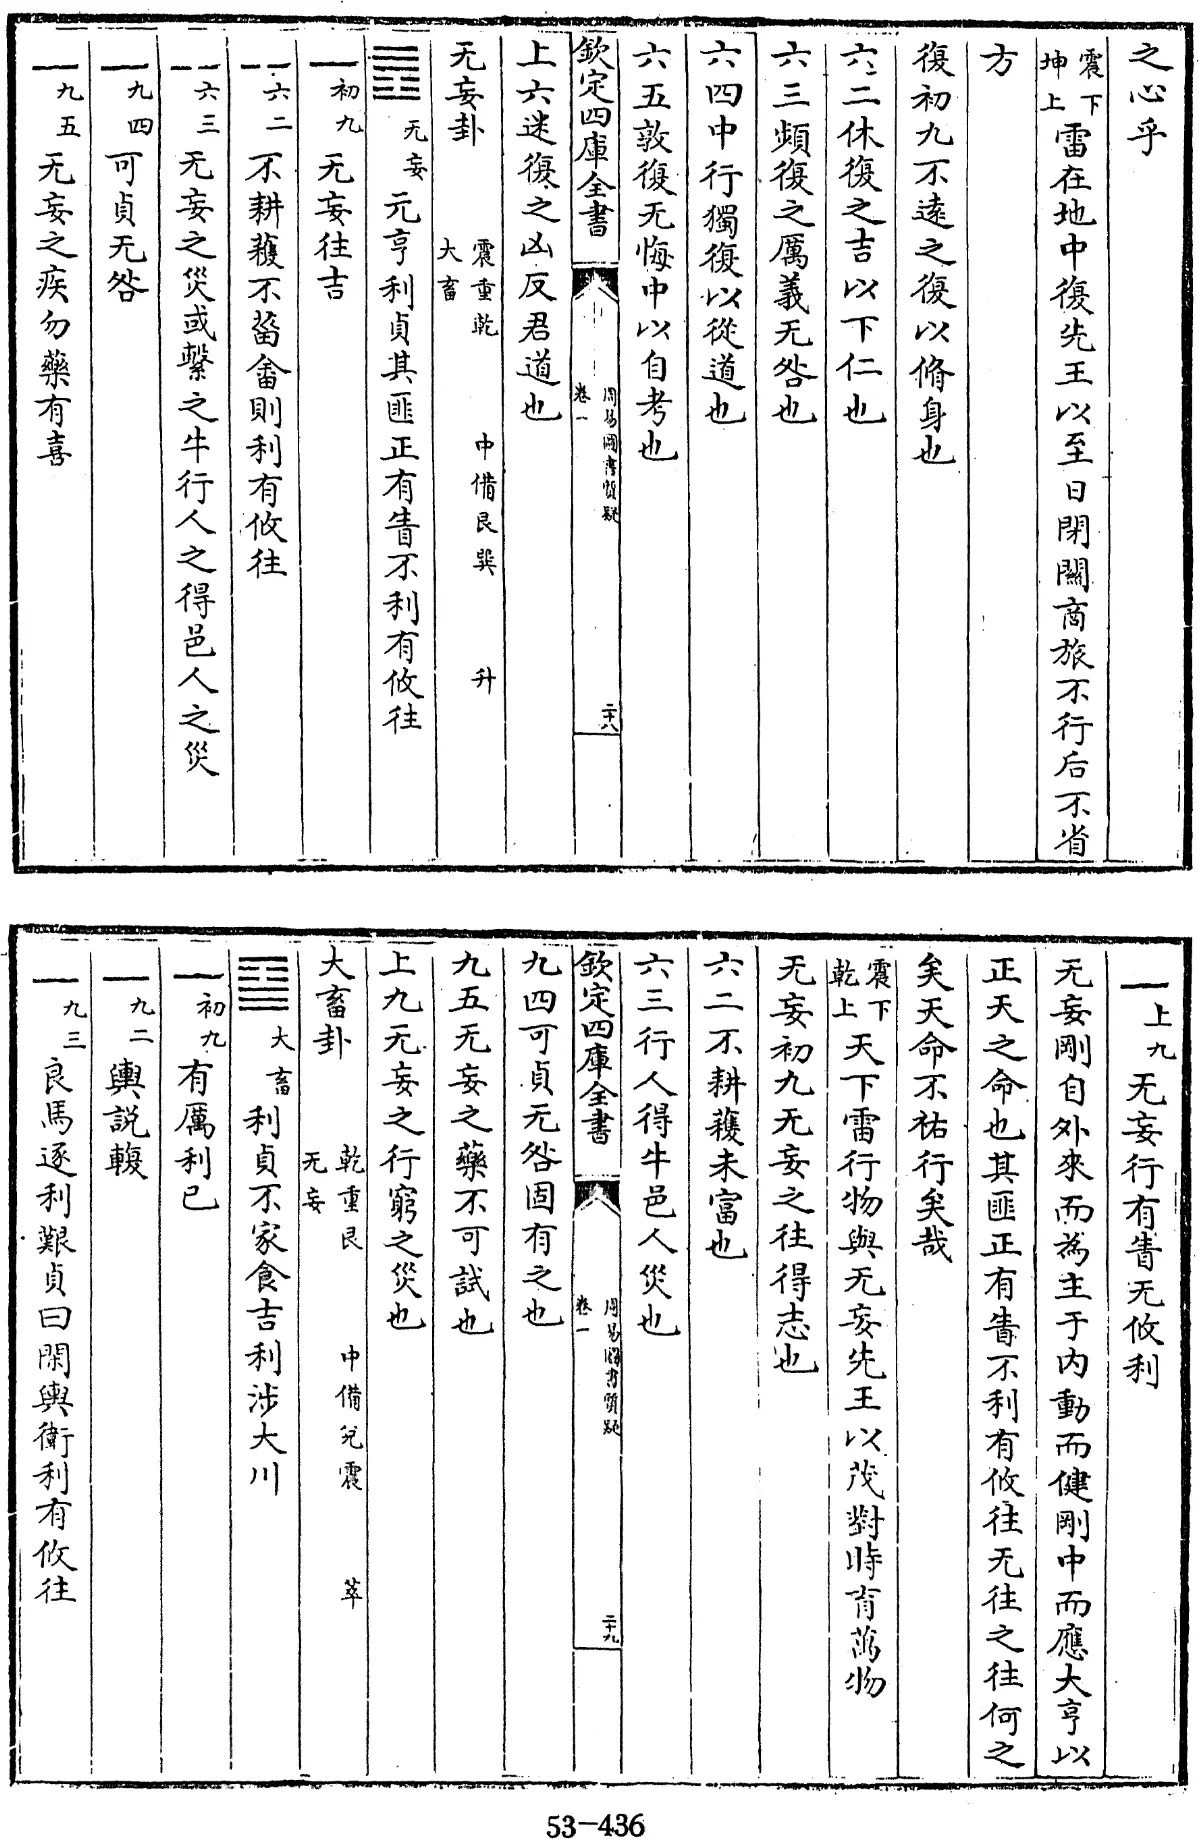 之心乎
震下坤上雷在地中復先王以至日閉關商旅不行后不省
方
復初九不遠之復以脩身也
六二休復之吉以下仁也
六三頻復之厲義无咎也
六四中行獨復以從道也
六五敦復无悔中以自考也
欽定四庫全書 周易圖書質疑 卷一 二十八
上六迷復之凶反君道也
无妄卦 震重乾 大畜 中備艮巽 升
䷘ 无妄 元亨利貞其匪正有眚不利有攸往
⚊ 初九 无妄往吉
⚋ 六二 不耕穫不菑畬則利有攸往
⚋ 六三 无妄之災或繫之牛行人之得邑人之災
⚊ 九四 可貞无咎
⚊ 九五 无妄之疾勿藥有喜
⚊ 上九 无妄行有眚无攸利
无妄剛自外來而為主于内動而健剛中而應大亨以
正天之命也其匪正有眚不利有攸往无往之往何之
矣天命不祐行矣哉
震下乾上天下雷行物與无妄先王以茂對時育萬物
无妄初九无妄之往得志也
六二不耕穫未富也
六三行人得牛邑人災也
欽定四庫全書 周易圖書質疑 卷一 二十九
九四可貞无咎固有之也
九五无妄之藥不可試也
上九无妄之行窮之災也
大畜卦 乾重艮 无妄 中備兌震 萃
䷙ 大畜 利貞不家食吉利涉大川
⚊ 初九 有厲利已
⚊ 九二 輿説輹
⚊ 九三 良馬逐利艱貞曰閑輿衛利有攸往
53-436